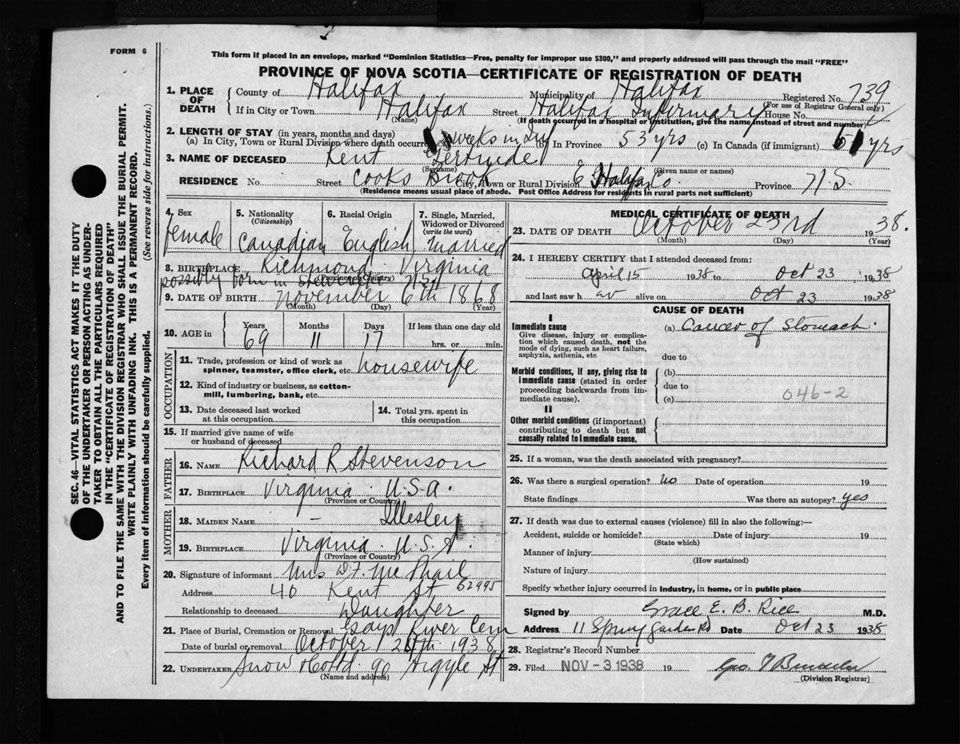 FORM 6
This form if placed in an envelope, marked "Dominion Statistics—Free, penalty for improper use $300," and properly addressed will pass through the mail "FREE"
PROVINCE OF NOVA SCOTIA—CERTIFICATE OF REGISTRATION OF DEATH
1. PLACE OF DEATH County of Halifax Municipality of Halifax Registered No. 739
(For use of Registrar General only)
If in City or Town Halifax Street Halifax Infirmary House No.
(Name) (If death occurred in a hospital or institution, give the name instead of street and number)
2. LENGTH OF STAY (in years, months and days)
(a) In City, Town or Rural Division where death occurred weeks in (b) In Province 53 yrs (c) In Canada (if immigrant) yrs
3. NAME OF DECEASED Kent Gertrude
(Surname) (Given name or names)
RESIDENCE No. Street Cooks Brook City, Town or Rural Division Halifax Co Province N.S.
(Residence means usual place of abode. Post Office Address for residents in rural parts not sufficient)
4. Sex female
5. Nationality (Citizenship) Canadian
6. Racial Origin English
7. Single, Married, Widowed or Divorced (write the word) Married
8. BIRTHPLACE Richmond Virginia
(Province or Country)
possibly born in
9. DATE OF BIRTH November 6th 1868
(Month) (Day) (Year)
10. AGE in Years 69 Months 11 Days 17 If less than one day old hrs. or min.
OCCUPATION
11. Trade, profession or kind of work as spinner, teamster, office clerk, etc. housewife
12. Kind of industry or business, as cotton-mill, lumbering, bank, etc.
13. Date deceased last worked at this occupation
14. Total yrs. spent in this occupation
15. If married give name of wife or husband of deceased
FATHER
16. NAME Richard R Stevenson
17. BIRTHPLACE Virginia U.S.A.
(Province or Country)
MOTHER
18. MAIDEN NAME –
19. BIRTHPLACE Virginia U.S.A.
(Province or Country)
20. Signature of informant Mrs D.F. McPhail
Address 40 Kent St 62995
Relationship to deceased Daughter
21. Place of Burial, Cremation or Removal Gays River Cem
Date of burial or removal October 26th 1938
22. UNDERTAKER Snow & Co Ltd 90 Argyle St
(Name and address)
MEDICAL CERTIFICATE OF DEATH
23. DATE OF DEATH October 23rd 1938.
(Month) (Day) (Year)
24. I HEREBY CERTIFY that I attended deceased from:
April 15 1938 to Oct 23 1938
and last saw h er alive on Oct 23 1938
CAUSE OF DEATH
I
Immediate cause
Give disease, injury or complication which caused death, not the mode of dying, such as heart failure, asphyxia, asthenia, etc
(a) Cancer of Stomach.
due to
Morbid conditions, if any, giving rise to immediate cause (stated in order proceeding backwards from immediate cause).
(b)
due to
(c) 046-2
II
Other morbid conditions (if important) contributing to death but not causally related to immediate cause.
25. If a woman, was the death associated with pregnancy?
26. Was there a surgical operation? no Date of operation 19
State findings Was there an autopsy? yes
27. If death was due to external causes (violence) fill in also the following:—
Accident, suicide or homicide? Date of injury 19
(State which)
Manner of injury
(How sustained)
Nature of injury
Specify whether injury occurred in industry, in home, or in public place
Signed by Grace E. B. Rice M.D.
Address 11 Spring Garden Rd Date Oct 23 1938
28. Registrar's Record Number
29. Filed NOV -3 1938 19
(Division Registrar)
SEC. 46—VITAL STATISTICS ACT MAKES IT THE DUTY
OF THE UNDERTAKER OR PERSON ACTING AS UNDER-
TAKER TO OBTAIN ALL THE PARTICULARS REQUIRED
IN THE "CERTIFICATE OF REGISTRATION OF DEATH"
AND TO FILE THE SAME WITH THE DIVISION REGISTRAR WHO SHALL ISSUE THE BURIAL PERMIT.
WRITE PLAINLY WITH UNFADING INK. THIS IS A PERMANENT RECORD.
Every item of information should be carefully supplied. (See reverse side for instructions.)